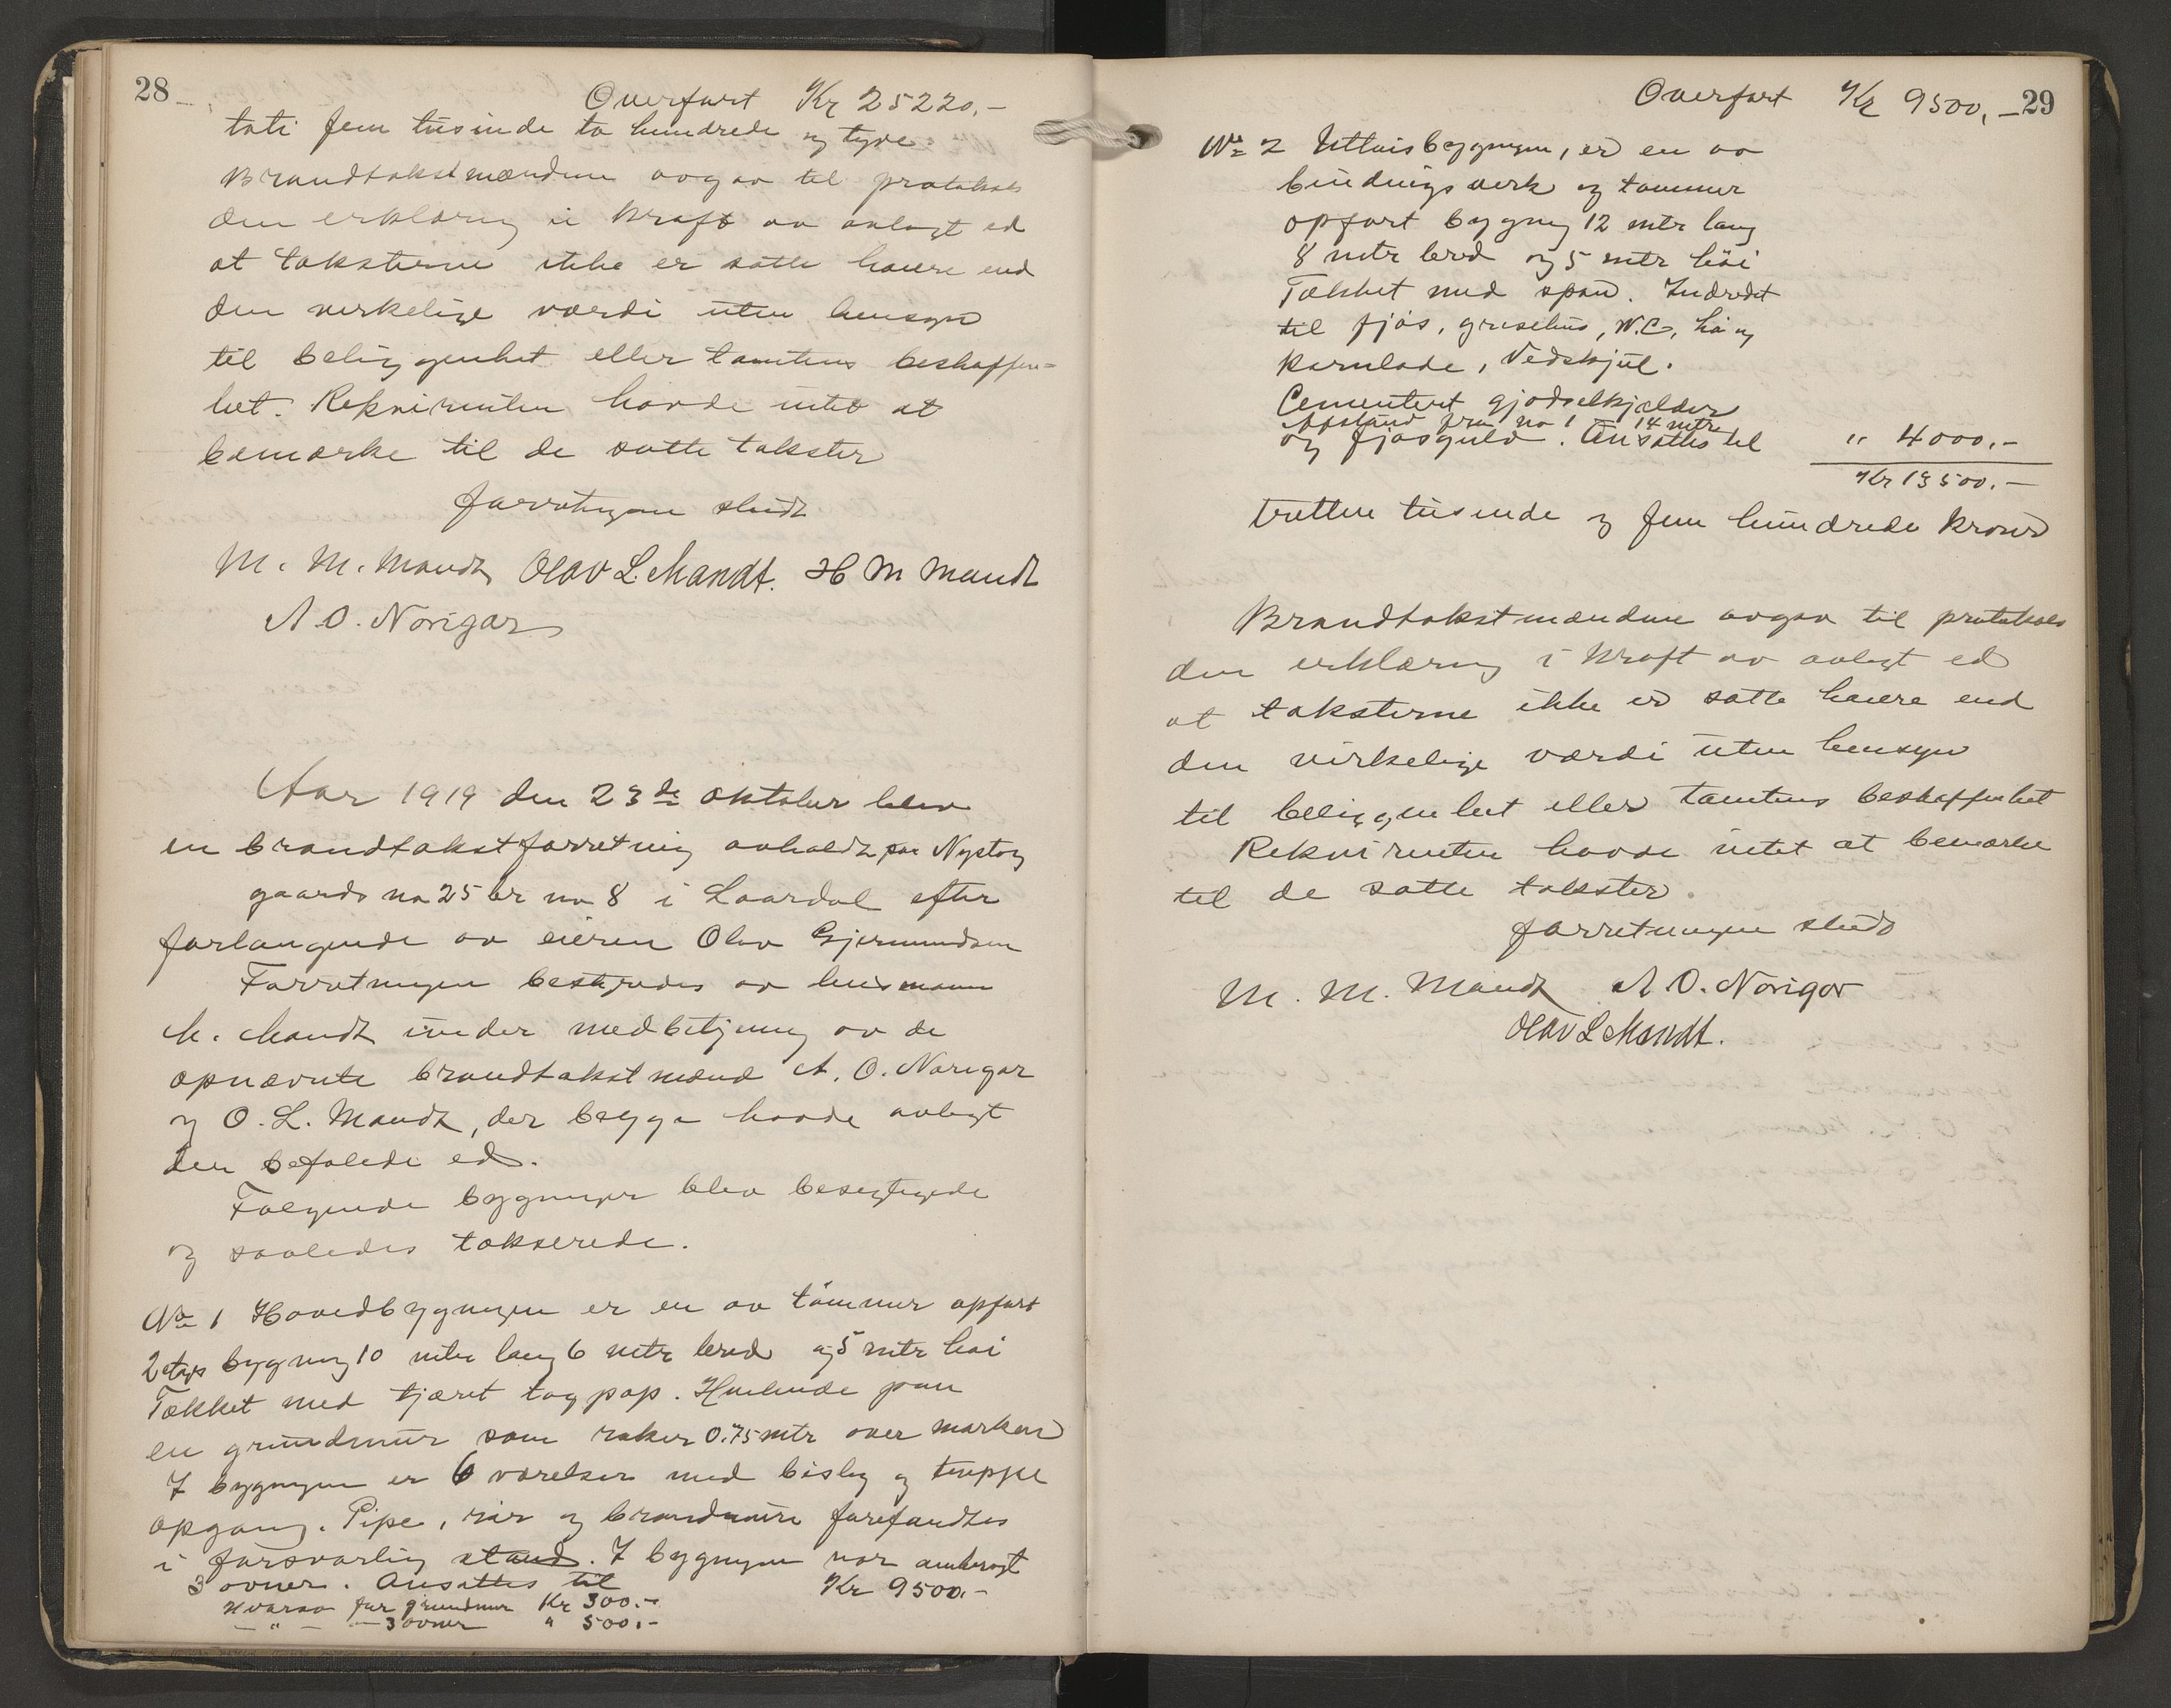 28
Overført Kr 25220,-
tøti fem tusinde to hundrede og tyve
Brandtakstmændene avgav til protokols
den erklæring i kraft av avlagt ed
at taksterne ikke er satte høiere end
den virkelige værdi uten hensyn
til beliggenhet eller tomtens beskaffen-
het. Rekvirenten havde intet at
bemærke til de satte takster
forretningen slutt
M. M. Mandt Olav L. Mandt. H M Mandt
A. O. Norigar
Aar 1919 den 23de oktober blev
en brandtakstforretning avholdt paa Nystog
gaards no 25 br no 8 i Laardal efter
forlangende av eieren Olav Gjermundsen
Forretningen bestyredes av lensmann
M. Mandt under medbetjening av de
opnævnte brandtakstmænd A. O. Norigar
og O. L. Mandt, der begge havde avlagt
den befalede ed.
Følgende bygninger blev besigtigede
og saaledes takserede.
No 1 Hovedbygningen er en av tømmer opført
2 etags bygning 10 mtr lang 6 mtr bred og 5 mtr høi
Tækket med tjæret tagpap. Hvilende paa
en grundmur som raker 0.75 mtr over marken
I bygningen er 6 værelser med bislag og trappe
opgang. Pipe, rør og brandmure forefandtes
i forsvarlig stand. I bygningen var anbragt
3 ovner. Ansættes til Kr 9500.-
Hvorav for grundmur Kr 300.-
- " - - 3 ovner " 500.-
Overført Kr 9500,- 29
No 2 Uthusbygningen, er en av
bindingsverk og tømmer
opført bygning 12 mtr lang
8 mtr bred og 5 mtr høi
Tækket med spon. Indredet
til fjøs, grisehus, W.C, hø og
kornlade, Vedskjul.
Cementert gjødselkjelder
Afstand fra no 1 14 mtr
og fjøsgulv. Ansættes til " 4000.-
Kr 13500.-
tretten tusende og fem hundrede kroner
Brandtakstmændene avgav til protokols
den erklæring i kraft av avlagt ed
at taksterne ikke er satte høiere end
den virkelige værdi uten hensyn
til beliggenhet eller tomtens beskaffenhet
Rekvirenten havde intet at bemærke
til de satte takster.
forretningen slutt
M. M. Mandt A O. Norigar
Olav L Mandt.